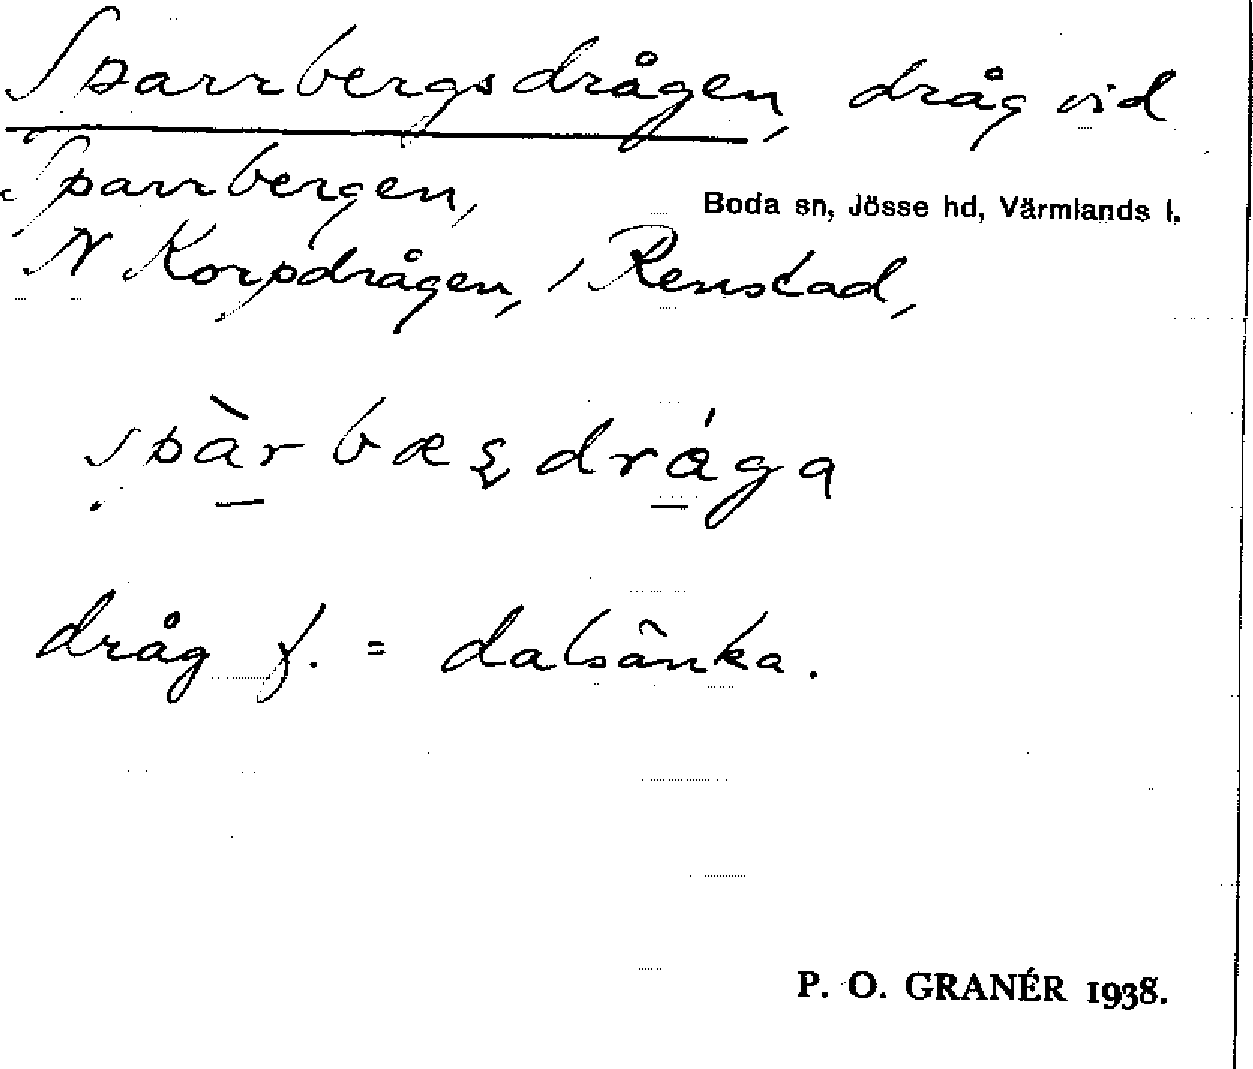 Sparrbergsdrågen, dråg vid
Sparrbergen,
Boda sn, Jösse hd, Värmlands l.
N Korpdrågen, i Renstad,
spàrbæʂdrága
dråg f. = dalsänka.
P. O. GRANÉR 1938.